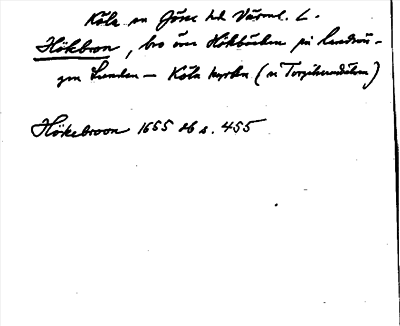 Köla sn Jösse hd Värml. L.
Hökbron, bro över Hökbäcken på landsvä-
gen Lunden – Köla kyrka (i Torgilsrudälven)
Hökebroon 1655 ob s. 455